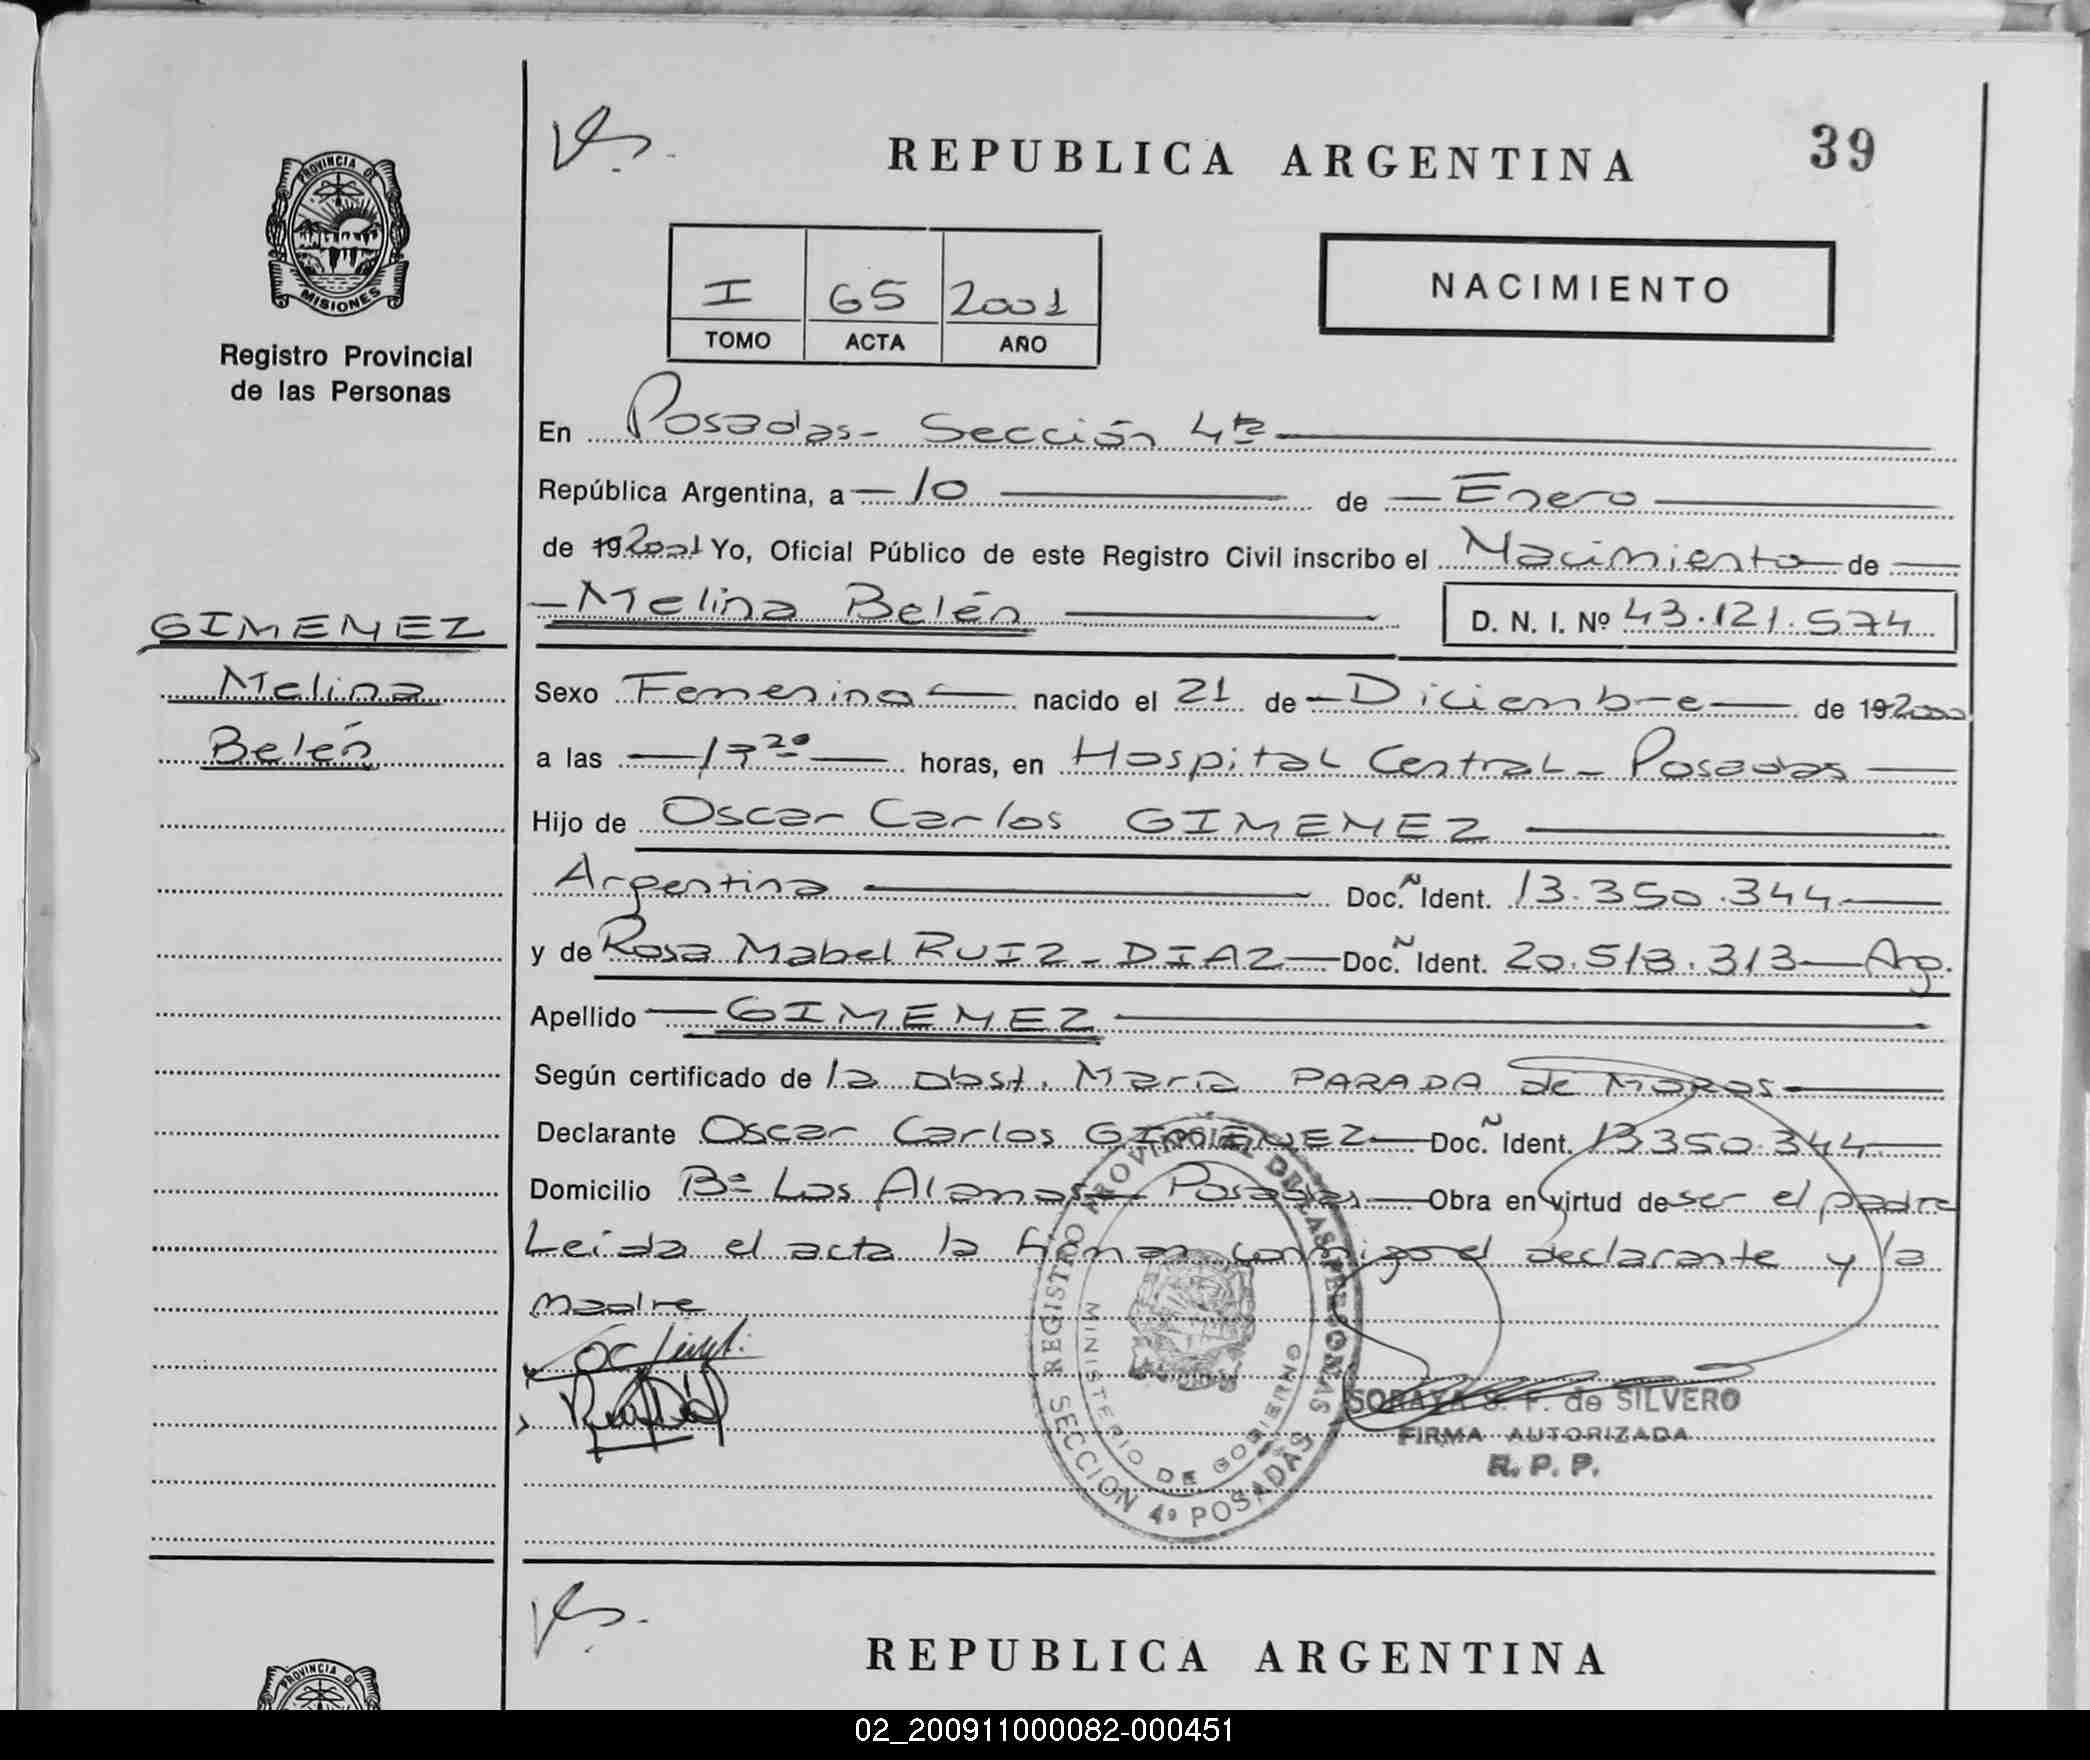 REPUBLICA ARGENTINA
39
PROVINCIA DE
MISIONES
Registro Provincial
de las Personas
I 65 2001
TOMO ACTA AÑO
NACIMIENTO
En Posadas - Sección 4ta
República Argentina, a 10 de Enero
de 19 2001 Yo, Oficial Público de este Registro Civil inscribo el Nacimiento de
Melina Belén D. N. I. Nº 43.121.574
GIMENEZ
Melina
Belén
Sexo Femenino nacido el 21 de Diciembre de 19 2000
a las 17 20 horas, en Hospital Central - Posadas
Hijo de Oscar Carlos GIMENEZ
Argentina Doc. Ñ Ident. 13.350.344
y de Rosa Mabel RUIZ - DIAZ Doc. Ñ Ident. 20.513.313 Arg.
Apellido GIMENEZ
Según certificado de la Obst. María PARADA de
Declarante Oscar Carlos GIMENEZ Doc. Ñ Ident. 13350.344
Domicilio Bº Los Posadas Obra en virtud de ser el padre
Leída el acta la firman conmigo el declarante y la
madre
REGISTRO PROVINCIAL DE LAS PERSONAS
MINISTERIO DE GOBIERNO
SECCION 4º POSADAS
SORAYA S. F. de SILVERO
FIRMA AUTORIZADA
R. P. P.
REPUBLICA ARGENTINA
PROVINCIA DE
02_200911000082-000451